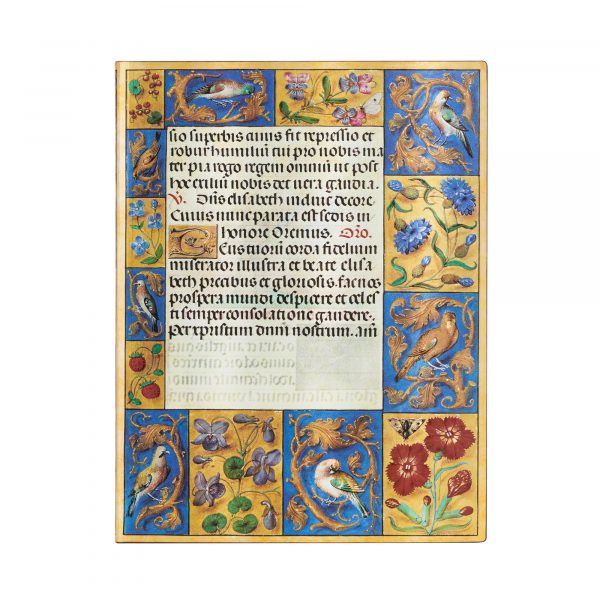 sio superbis cuius fit repressio et
robur humiliũ tui pro nobis ma
ter pia rogo regem omniũ ut post
hoc exiliũ nobis det uera gaudia.
V. Dñs elisabeth induit decore.
Cuius nunc parata est sedis in
honore Oremus. Orõ.
Deus tuorũ corda fidelium
miserator illustra et beate elisa
beth precabus et gloriosis fac nos
prospera mundi despicere et celes
ti semper consolatione gaudere.
Per xpristum dñm nostrum. am